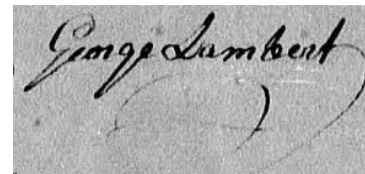 George Lambert